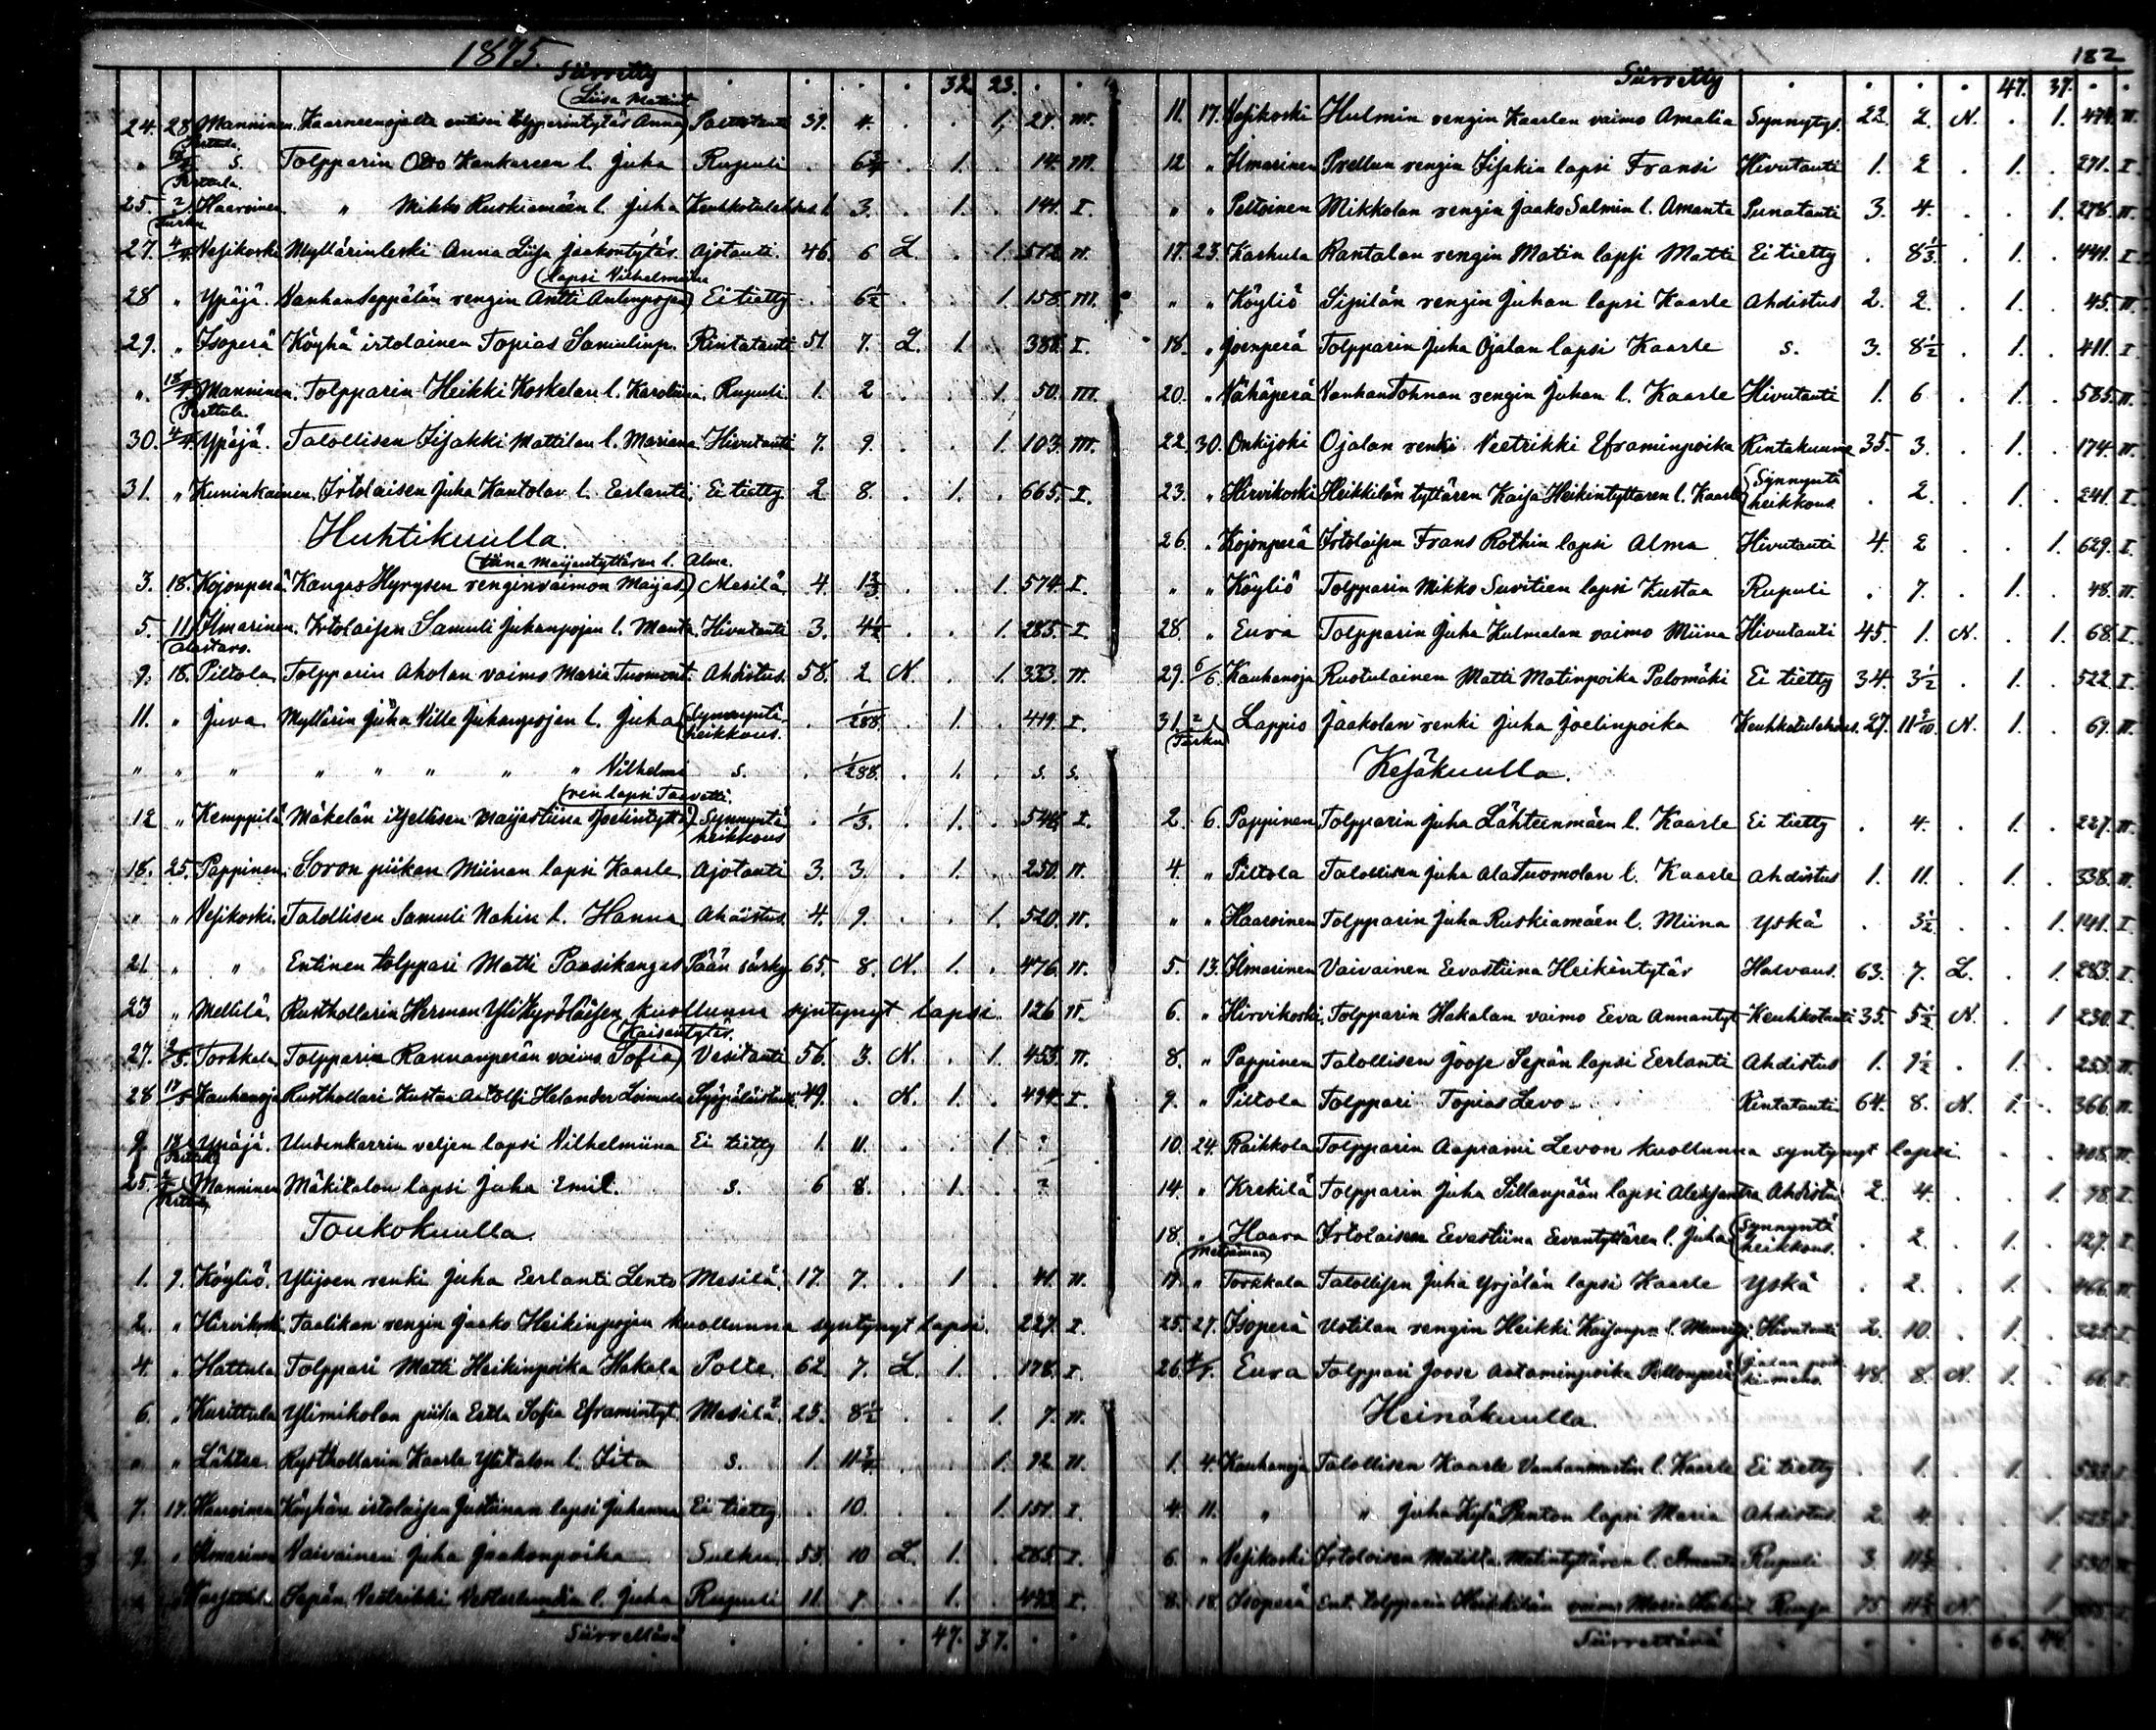 1875.
182
Siirretty . . . . 32. 23. . .
(Liisa Matint.
24. 28. Manninen. Kaarneenojalta entisen tolpparintytär Anna) Polttotauti 39. 4. . . 1. 21. III.
(Perttula.
" s. Tolpparin Otto Kankareen l. Juha Rupuli . 6 . 1. . 14. III.
(Perttula.
25. Haaroinen. " Mikko Ruskiamäen l. Juha Keuhkotulehdus 1. 3. . 1. . 141. I.
(Turku
27. 4/4. Vesikoski Myllärinleski Anna Liisa Jaakontytär. Ajotauti. 46. 6 L. . 1. 512. II.
(lapsi Vilhelmiina
28 " Ypäjä. Vanhanseppälän rengin Antti Antinpojan) Ei tietty . 6½ . . 1. 158. III.
29. " Isoperä Köyhä irtolainen Topias Samulinp. Rintatauti 51 7. L. 1. . 381. I.
". 18/4. Manninen. Tolpparin Heikki Koskelan l. Karoliina. Rupuli. 1. 2 . . 1. 50. III.
(Perttula.
30. 4/4. Ypäjä. Talollisen Iisakki Mattilan l. Mariana. Hivutauti 7. 9. . . 1. 103. III.
31. " Kuninkainen. Irtolaisen Juha Kantolan l. Eerlanti. Ei tietty 2 8. . 1. . 665. I.
Huhtikuulla.
(tiina Maijantyttären l. Alma.
3. 18. Kojonperä. Kangas Hyrysen renginvaimon Maijas) Mesilä 4. 1⅔ . . 1. 574. I.
5. 11 Ilmarinen. Irtolaisen Samuli Juhanpojan l. Manta. Hivutauti 3. 4½ . . 1. 285. I.
(Alastaro.
9. 18. Piltola Tolpparin Aholan vaimo Maria Tuomont. Ahdistus. 58. 2. N. . 1. 333. II.
11. " Juva. Myllärin Juha Ville Juhanpojan l. Juha (Synnyntä-heikkous. . 1/288. . 1. . 419. I.
" " " " " " " " Vilhelmi s. . 1/288. . 1. . s. s.
(ren lapsi Taavetti.
12 " Kemppilä Mäkelän itsellisen Maijastiina Joelintyttä) Synnyntä heikkous . ⅓. . 1. . 544. I.
18. 25. Pappinen. Soron piikan Miinan lapsi Kaarle. Ajotauti 3. 3 . 1. . 250. II.
" " Vesikoski. Talollisen Samuli Nahin l. Hanna Ahdistus. 4. 9. . . 1. 520. II.
21. " " Entinen tolppari Matti Paasikangas Pään särky 65. 8. N. 1. . 476. II.
23 " Mellilä. Rusthollarin Herman Yli Kyröläisen kuollunna syntynyt lapsi. 126 II.
(Kaisantytär.
27. 2/5. Torkkala Tolpparin Rannanperän vaimo Sofia) Vesitauti 56. 3. N. . 1. 453. II.
28 17/5 Kauhanoja Rusthollari Kustaa Aatolfi Helander Loimula 49. . N. 1. . 494. I.
9. Ypäjä. Uudenkarrin veljen lapsi Vilhelmiina Ei tietty 1. 11. . . 1 ?
25. Manninen Mäkitalon lapsi Juha Emil. s. 6 8. . 1. . ?
Toukokuulla.
1. 9. Köyliö. Ylijoen renki Juha Eerlanti Lento Mesilä. 17. 7. . 1. . 41. II.
2. " Hirvikoski Taalikan rengin Jaako Heikinpojan kuollunna syntynyt lapsi. 227. I.
4. " Hattula Tolppari Matti Heikinpoika Hakala Polte. 62. 7. L. 1. . 178. I.
6. " Kurittula Ylimikolan piika Eetla Sofia Eframintyt. Mesilä. 25. 8½ . . 1. 7. II.
" " Lähtee. Rysthollarin Kaarle Ylitalon l. Iita s. 1. 11¾. . . 1. 92. II.
7. 17. Haaroinen Köyhän irtolaisen Justiinan lapsi Juhanna Ei tietty. . 10. . . 1. 151. I.
9. " Ilmarinen Vaivainen Juha Jaakonpoika Sulku. 58. 10 L. 1. . 285. I.
Sepän Veetrikki Vesterlundin l. Juha Rupuli 11. 9. . 1. . 493. I.
Siirrettävä . . . . 47. 37. . .
Siirretty . . . . 47. 37. . .
11. 17. Vesikoski Hulmin rengin Kaarlen vaimo Amalia Synnytys. 22. 2. N. . 1. 474. II.
12 " Ilmarinen Prellun rengin Iisakin lapsi Fransi Hivutauti 1. 2 . 1. . 271. I.
" " Peltoinen Mikkolan rengin Jaako Salmin l. Amanta Punatauti 3. 4. . . 1. 278. II.
17. 23. Kaukula Rantalan rengin Matin lapsi Matti Ei tietty . 8⅓. . 1. . 441. I.
" " Köyliö Sipilän rengin Juhan lapsi Kaarle Ahdistus 2. 2. . 1. . 45. II.
18. " Joenperä Tolpparin Juha Ojalan lapsi Kaarle s. 3. 8½ . 1. . 411. I.
20. " Vähäperä VanhanTohnan rengin Juhan l. Kaarle Hivutauti 1. 6 . 1. . 585. II.
22. 30. Onkijoki Ojalan renki Veetrikki Eframinpoika Rintakuume 35. 3. . 1. . 174. II.
23. " Hirvikoski Heikkilän tyttären Kaisa Heikintyttären l. Kaarle (Synnyntä heikkous. . 2. . 1. . 241. I.
26. " Kojonperä Irtolaisen Frans Rothin lapsi Alma Hivutauti 4. 2 . . 1. 629. I.
" " Köyliö Tolpparin Mikko Suvitien lapsi Kustaa Rupuli . 7. . 1. . 48. II.
28. " Eura Tolpparin Juha Kulmalan vaimo Miina Hivutauti 45. 1. N. . 1. 68. I.
29. 6/6. Kauhanoja Ruotulainen Matti Matinpoika Palomäki Ei tietty 34. 3½ . 1. . 522. I.
31. Lappio Jaakolan renki Juha Joelinpoika Keuhkotulehdus. 27. 11 N. 1. . 69. II.
(Turku)
Kesäkuulla.
2. 6. Pappinen Tolpparin Juha Lähteenmäen l. Kaarle Ei tietty . 4. . 1. . 227. II.
4. " Piltola Talollisen Juha AlaTuomolan l. Kaarle Ahdistus 1. 11. . 1. . 338. II.
" " Haaroinen Tolpparin Juha Ruskiamäen l. Miina Yskä . 3½. . . 1. 141. I.
5. 13. Ilmarinen Vaivainen Eevastiina Heikintytär Halvaus. 63. 7. L. . 1. 283. I.
6. " Hirvikoski. Tolpparin Hakalan vaimo Eeva Annantyt. Keuhkotauti 35. 5½ N. . 1 230. I.
8. " Pappinen Talollisen Joose Sepän lapsi Eerlanti Ahdistus 1. 9½ . 1. . 253. II.
9. " Piltola Tolppari Topias Levo Rintatauti. 64. 8. N. 1. . 366. II.
10. 24. Raikkola Tolpparin Aaprami Levon kuollunna syntynyt lapsi. . . 408. II.
14. " Krekilä Tolpparin Juha Sillanpään lapsi Aleksantra Ahdistus 2. 4. . . 1. 98. I.
18. " Haara Irtolaisen Eevastiina Eevantyttären l. Juha (Synnyntä heikkous. . 2. . 1. . 127. I.
17. " Torkkala Talollisen Juha Yrjölän lapsi Kaarle Yskä . 2. . 1. . 466. II.
25. 27. Isoperä Uotilan rengin Heikki l. Hivutauti 2. 10. . 1. . 325. I.
26. Eura Tolppari Joose Aataminpoika 48. 8. N. 1. . 66. I.
Heinäkuulla.
1. 4. Kauhanoja Talollisen Kaarle Vanhanmartin l. Kaarle Ei tietty . 1. . 1. . 533. I.
4. 11. " " Juha KyläPenton lapsi Maria Ahdistus. 2. 4. . . 1. 523. I.
6. " Vesikoski Irtolaisen Matilta Matintyttären l. Amanta Rupuli 3. . . 1. 530
8. 18. Isoperä Ent. tolpparin Heikkilän vaimo Maria 75. N. . 1.
Siirrettävä . . . . 66. 46.